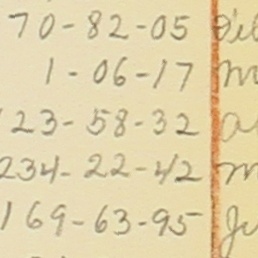 70-82-05
1-06-17
23-58-32
234-22-42
169-63-95